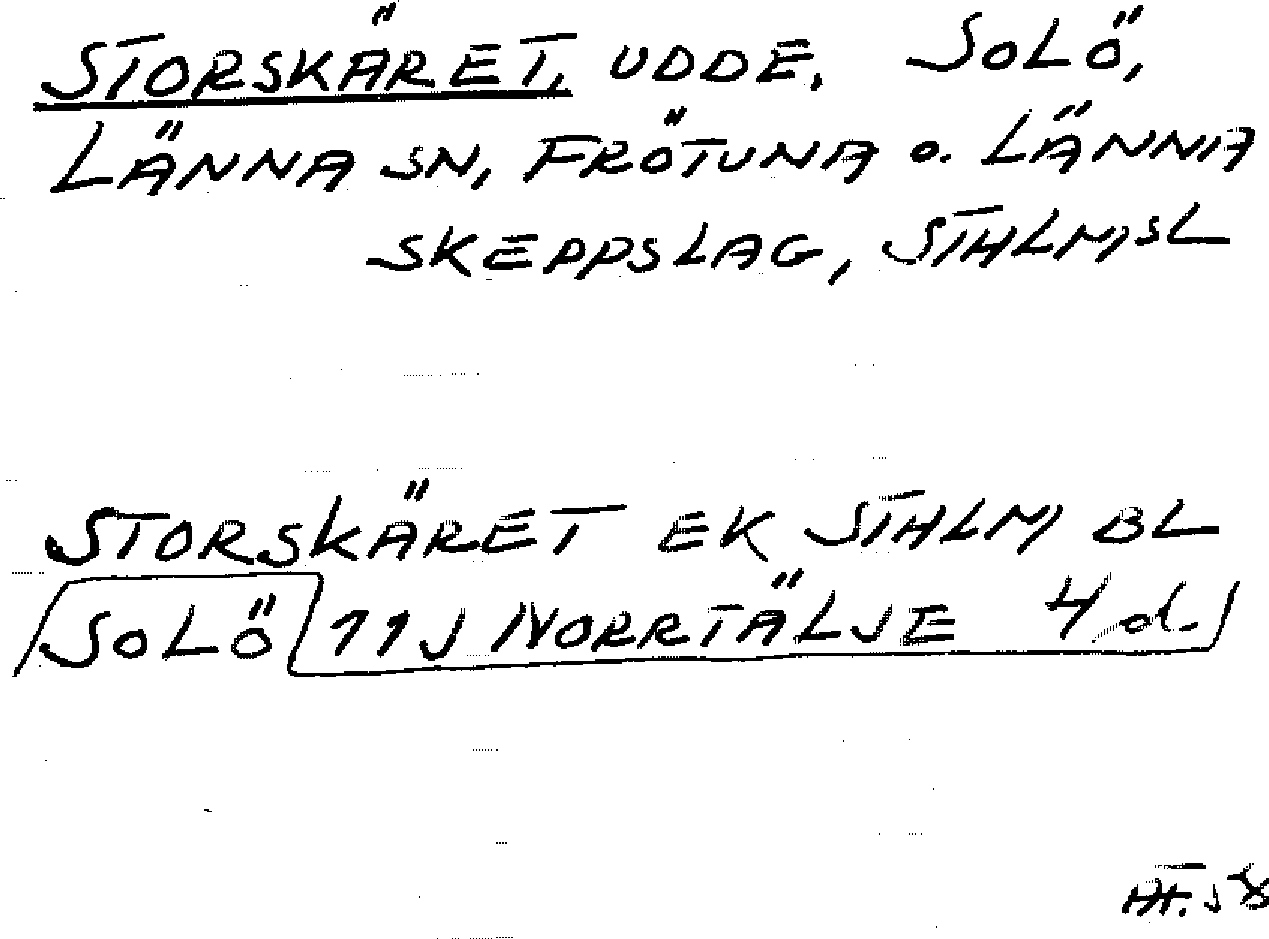 STORSKÄRET, UDDE, SOLÖ,
LÄNNA SN, FRÖTUNA o. LÄNNA
SKEPPSLAG, STHLMS L
STORSKÄRET EK STHLM BL
SOLÖ 11J NORRTÄLJE 4d.